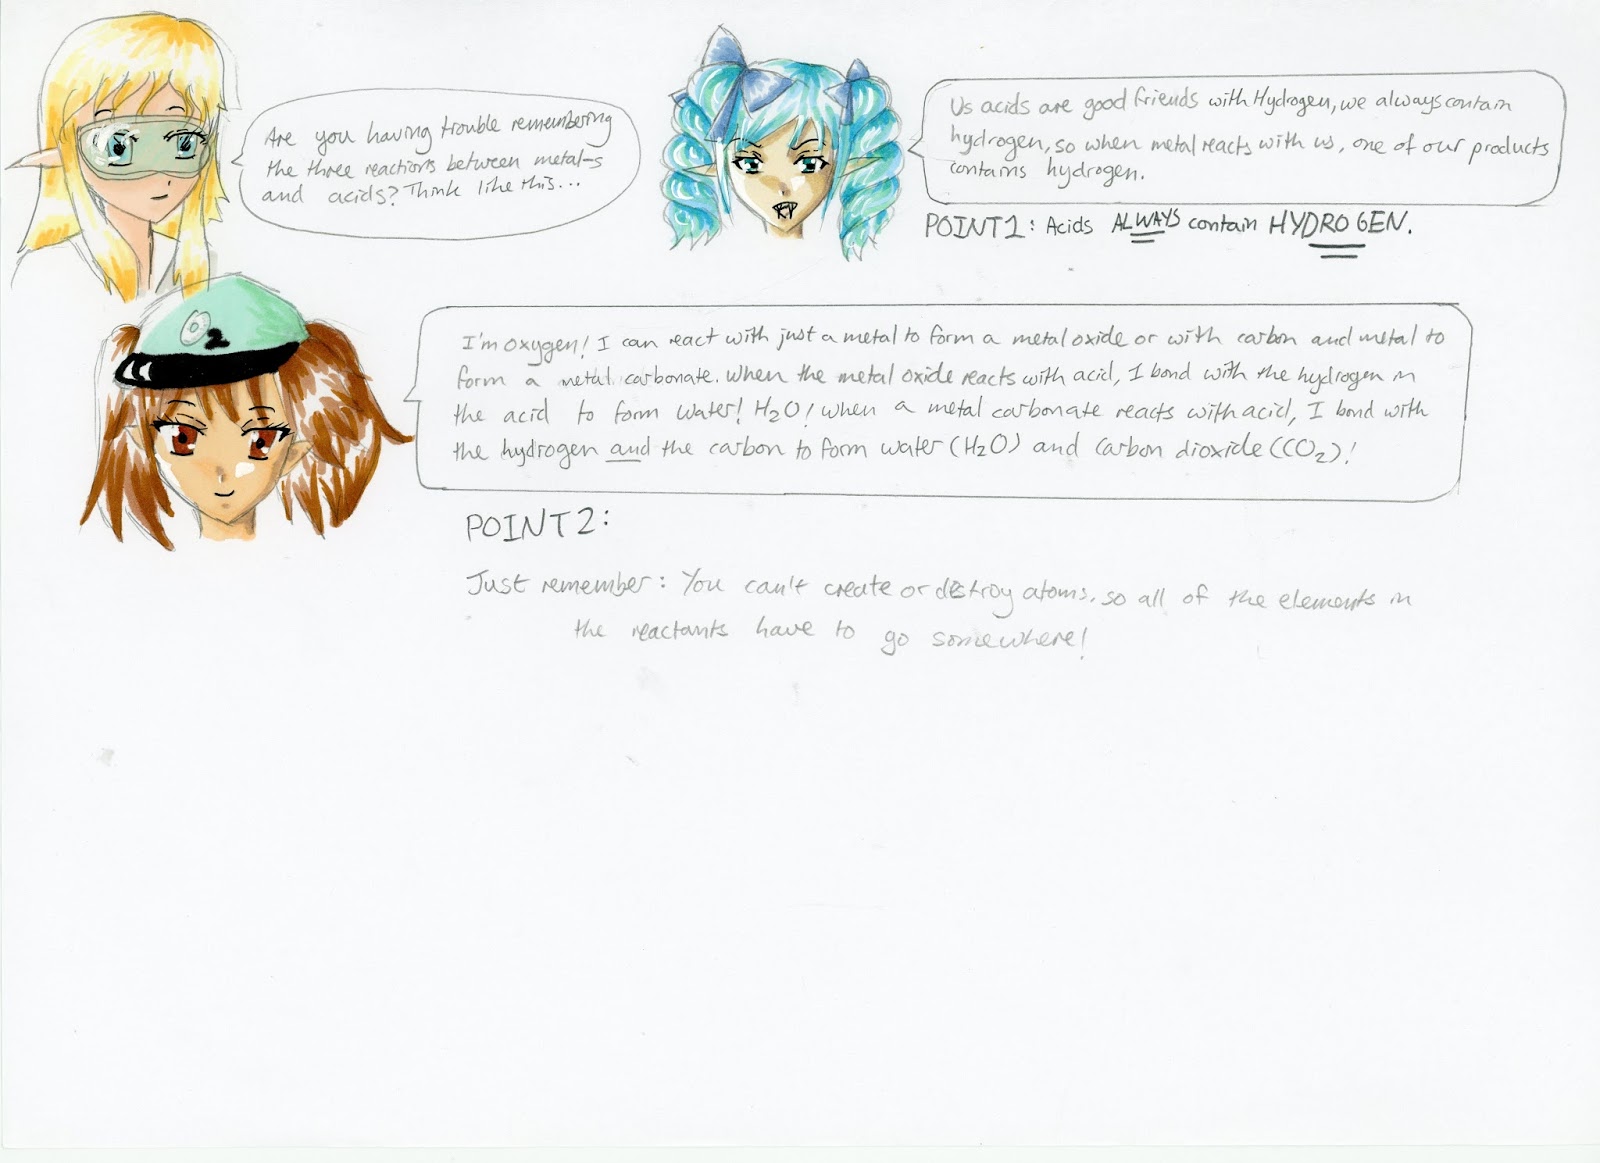 Are you having trouble remembering
the three reactions between metal-s
and acids? Think like this...
Us acids are good friends with Hydrogen, we always contain
hydrogen, so when metal reacts with us, one of our products
contains hydrogen.
POINT 1: Acids ALWAYS contain HYDROGEN.
O2
I'm oxygen! I can react with just a metal to form a metal oxide or with carbon and metal to
form a metal carbonate. When the metal oxide reacts with acid, I bond with the hydrogen in
the acid to form water! H2O! When a metal carbonate reacts with acid, I bond with
the hydrogen and the carbon to form water (H2O) and carbon dioxide (CO2)!
POINT 2:
Just remember: You can't create or destroy atoms, so all of the elements in
the reactants have to go somewhere!